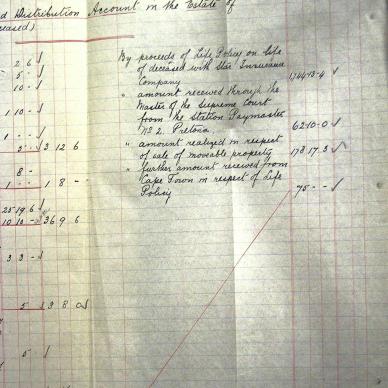 d Distribution Account in the Estate of
ceased)
2 6
5 -
10 -
1 10 -
1 - -
5 3 12 6
8 -
1 - - 1 8 -
25 19 6
10 10 - 36 9 6
3 3 -
5 3 8 0
5
By proceeds of Life Policy on life
of deceased with Star Insurance
Company 1744-13-4
" amount received through the
Master of the Supreme Court
from the Station Paymaster
No 2. Pretoria 62-10-0
" amount realized in respect
of sale of moveable property 178 17. 3
" further amount received from
Cape Town in respect of Life
Policy 75 - -